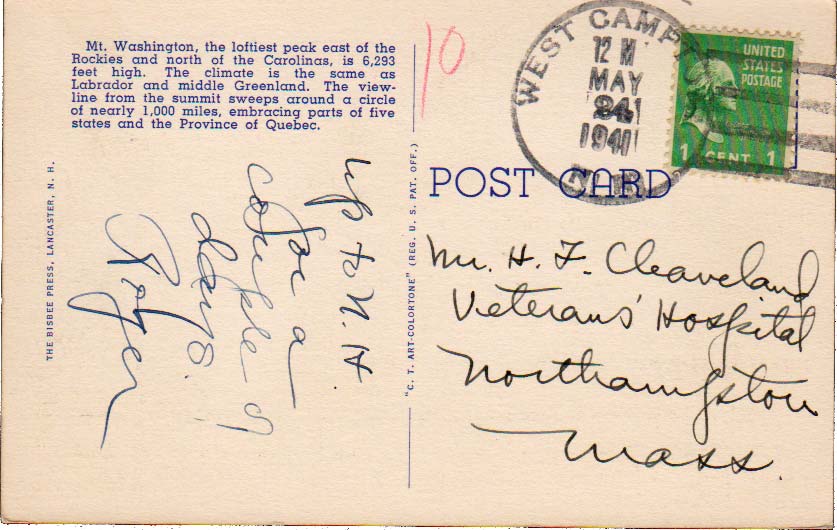 Mt. Washington, the loftiest peak east of the
Rockies and north of the Carolinas, is 6,293
feet high. The climate is the same as
Labrador and middle Greenland. The view-
line from the summit sweeps around a circle
of nearly 1,000 miles, embracing parts of five
states and the Province of Quebec.
10
WEST CAMP
12 M
MAY
24
1941
N.H.
UNITED
STATES
POSTAGE
1 CENT 1
POST CARD
THE BISBEE PRESS, LANCASTER, N. H.
up to N.H.
for a
couple of
days.
Roger
"C. T. ART-COLORTONE" (REG. U. S. PAT. OFF.)
Mr. H. F. Cleaveland
Veterans' Hospital
Northampton
Mass.